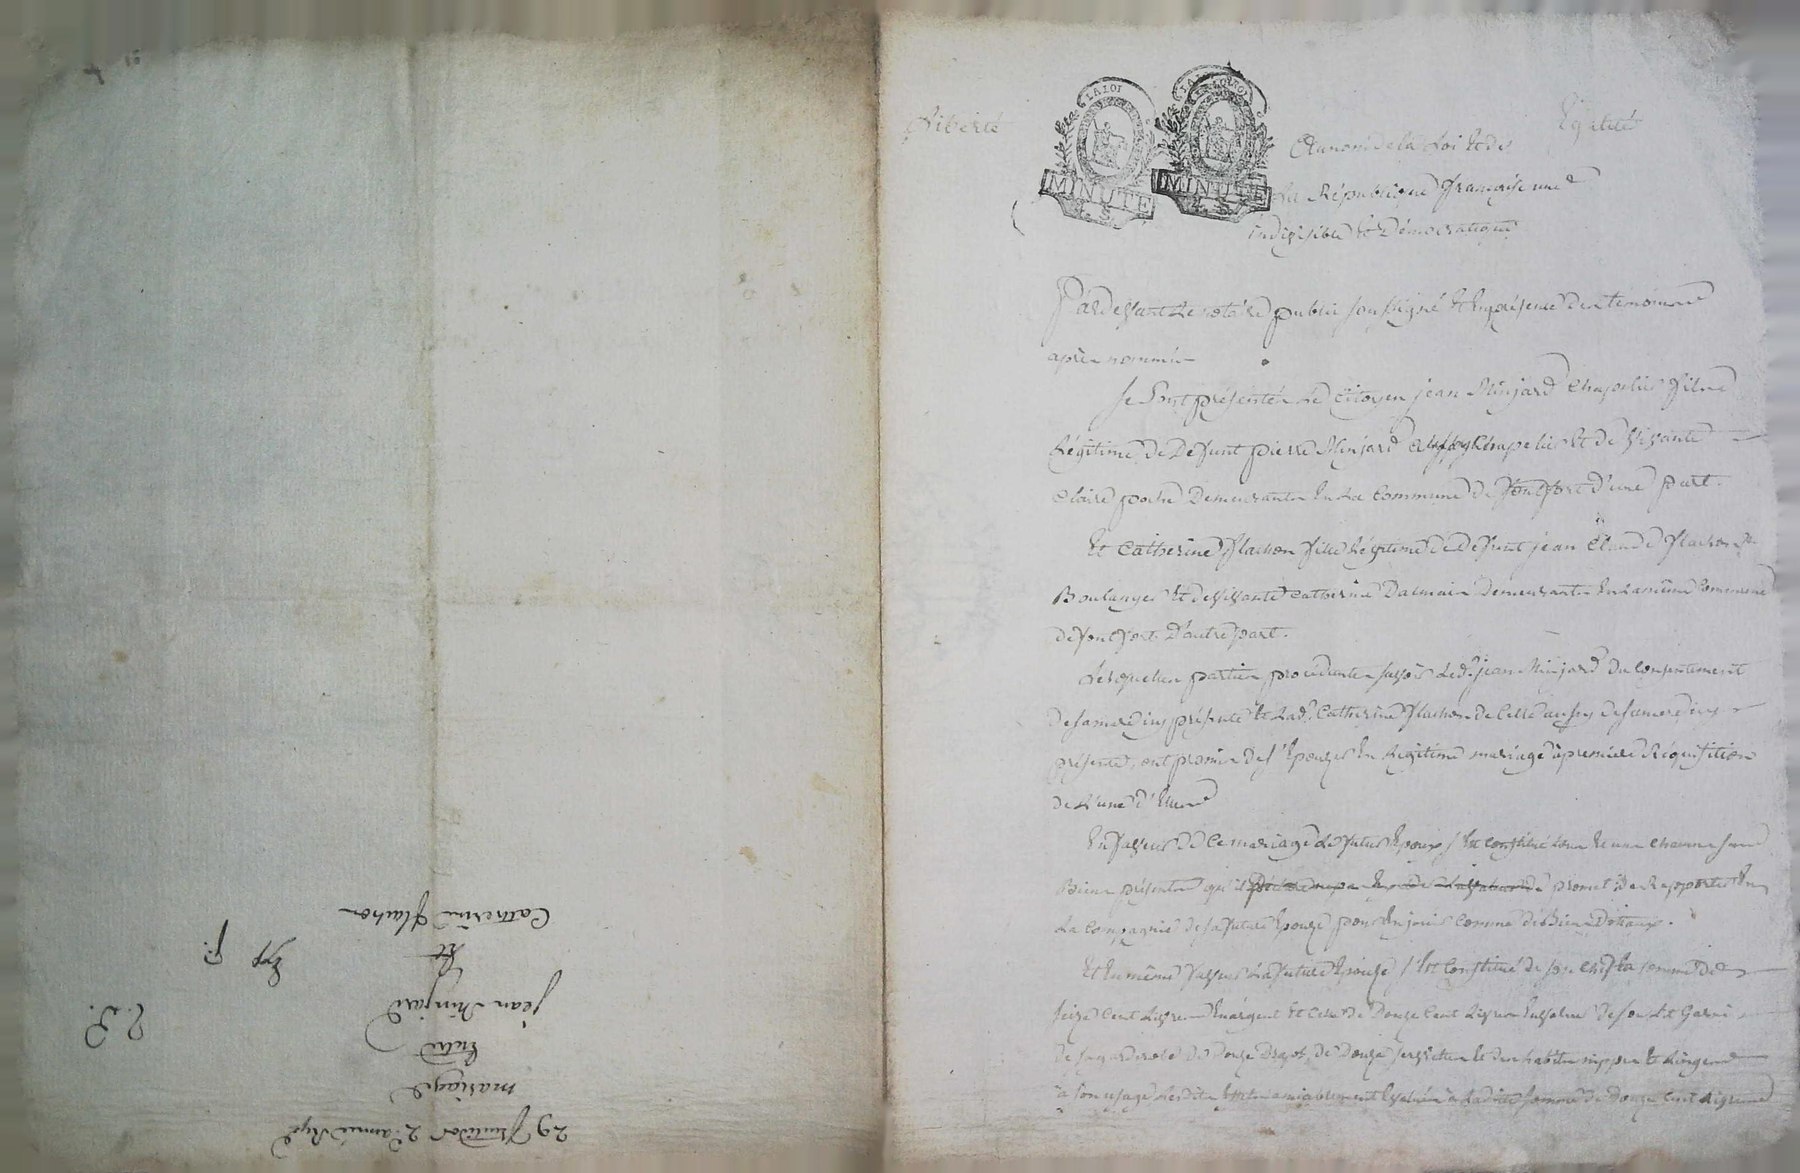 29 fructidor 2e année Rép
mariage
Entre
jean Minjard
Et
Catherine flachon
Exp
Liberté
Egalité
LA LOI
MINUTE
MINUTE
Au nom de la Loi Et de
La République françoise une
indivisible Et Démocratique
Pardevant Le notaire public soussigné Et En présence des temoins
après nommés
se sont présentés Le Citoyen jean Minjard Chapelier fils
Légitime de Defunt pierre Minjard aussy Chapelier Et de vivante
Claire Demeurants En La Commune de fontfort d'une part.
Et Catherine flachon fille Légitime de Defunt jean Claude flachon
Boulanger Et de vivante Catherine Dalmais Demeurants En La même Commune
de fontfort D'autre part.
Lesquelles parties procédantes savoir Led. jean Minjard du Consentement
de sa mere icy présente Et Lad. Catherine flachon de Celle aussy de sa mere icy
présente, ont promis de s'Epouzer En Légitime mariage à premiere Réquisition
de L'une d'Elles
En faveur de Ce mariage Le futur Epoux s'Est Constitué tous Et uns Chacuns ses
Biens présents qu'il promet de Rapporter En
La Compagnie de sa future Epouze pour En jouir Comme de Biens Dotaux.
Et En même faveur La future Epouze s'Est Constitué de son Chef La somme de
seize Cent Livres En argent Et Celle de Douze Cent Livres En valeur de son Lit Garni
de sa garderobe de Douze Draps, de Douze serviettes Et des habits nippes Et Linges
à son usage Lesdits Effets amiablement Evalués à Ladite somme de Douze Cent Livres